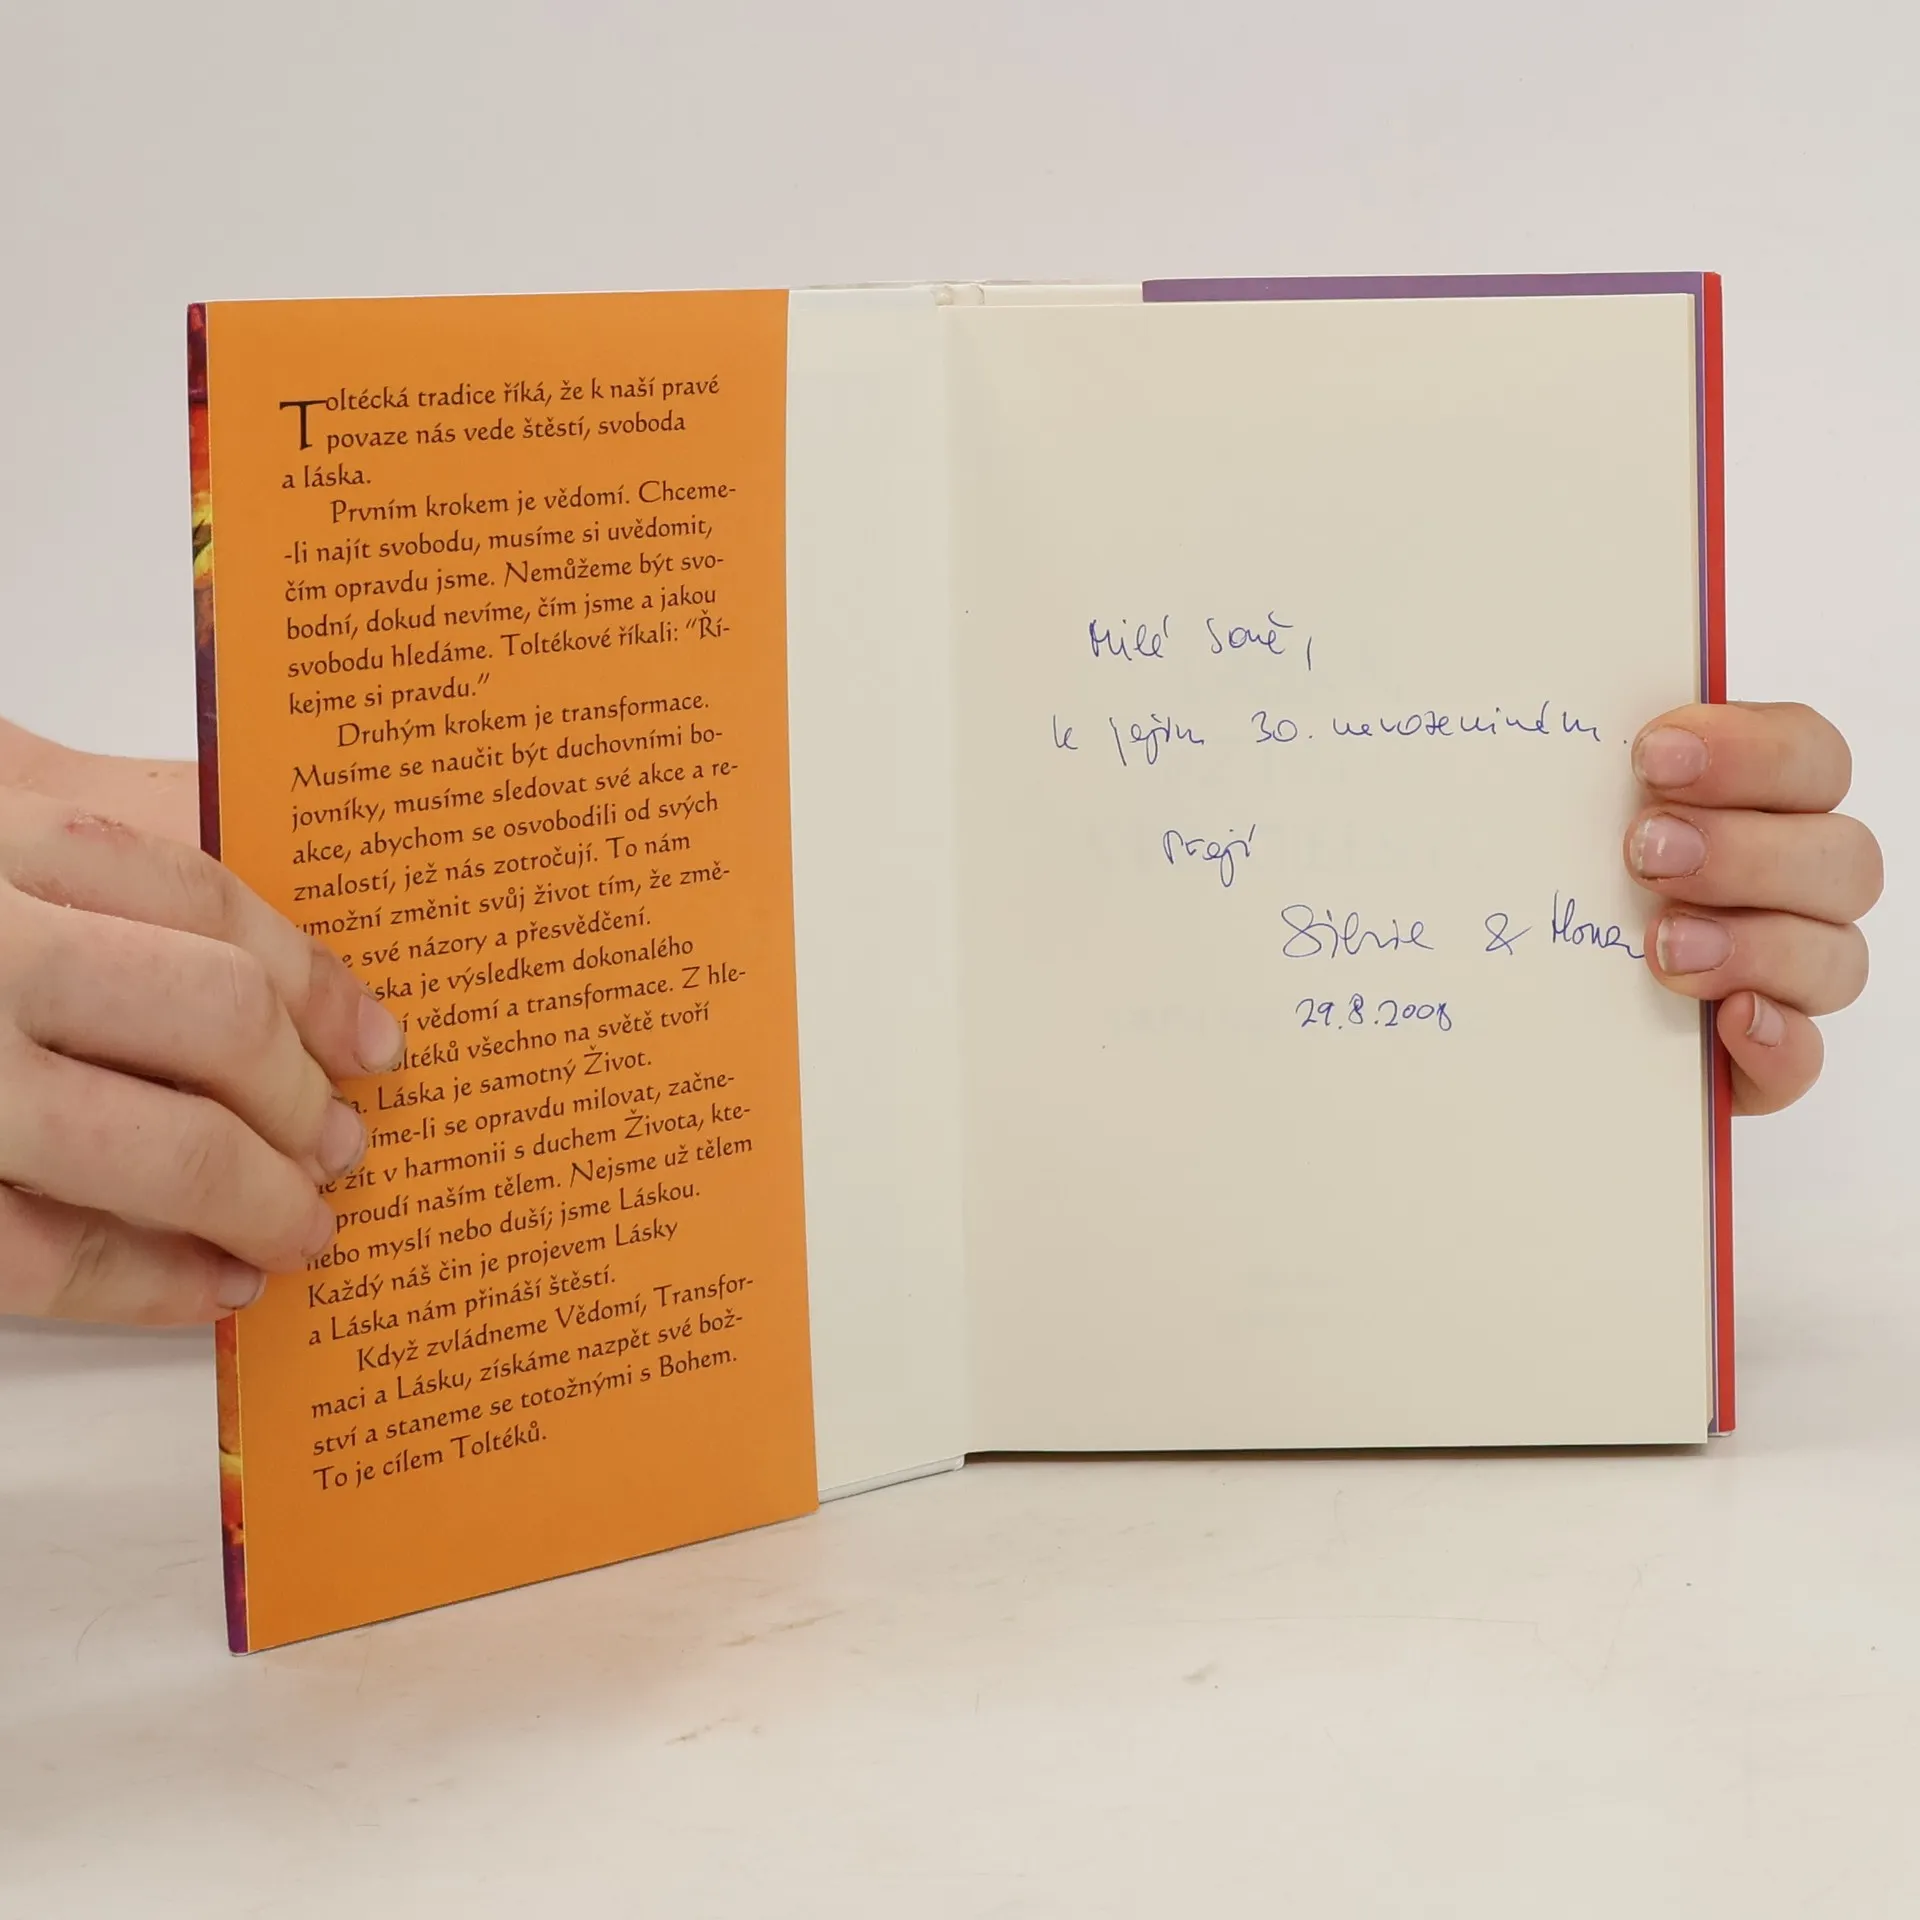 Toltécká tradice říká, že k naší pravé
povaze nás vede štěstí, svoboda
a láska.
Prvním krokem je vědomí. Chceme-
-li najít svobodu, musíme si uvědomit,
čím opravdu jsme. Nemůžeme být svo-
bodní, dokud nevíme, čím jsme a jakou
svobodu hledáme. Toltékové říkali: “Ří-
kejme si pravdu.”
Druhým krokem je transformace.
Musíme se naučit být duchovními bo-
jovníky, musíme sledovat své akce a re-
akce, abychom se osvobodili od svých
znalostí, jež nás zotročují. To nám
umožní změnit svůj život tím, že změ-
své názory a přesvědčení.
je výsledkem dokonalého
vědomí a transformace. Z hle-
všechno na světě tvoří
Láska je samotný Život.
se opravdu milovat, začne-
žít v harmonii s duchem Života, kte-
proudí naším tělem. Nejsme už tělem
nebo myslí nebo duší; jsme Láskou.
Každý náš čin je projevem Lásky
a Láska nám přináší štěstí.
Když zvládneme Vědomí, Transfor-
maci a Lásku, získáme nazpět své bož-
ství a staneme se totožnými s Bohem.
To je cílem Toltéků.
Milé Soně,
k jejím 30. narozeninám.
Přejí
Silvie &
29.8.2008